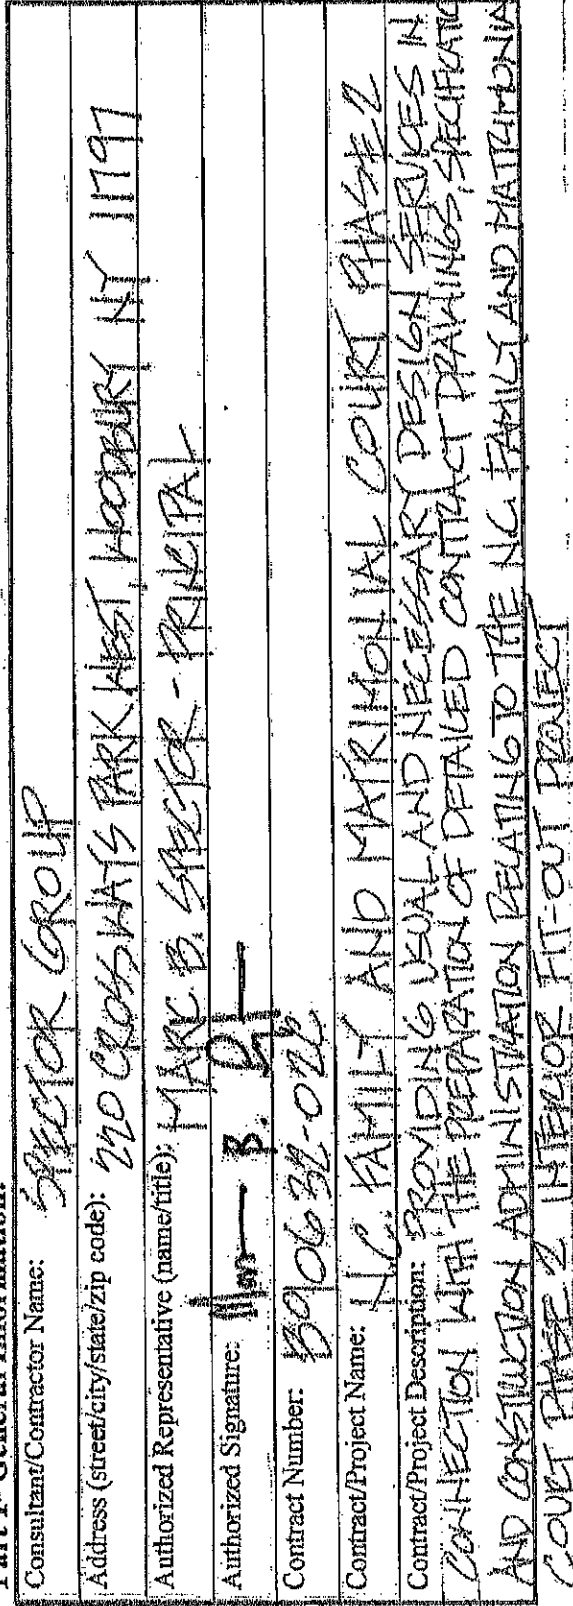 Part 1- General Information:
Consultant/Contractor Name: SPECTOR GROUP
Address (street/city/state/zip code): 220 CROSSWAYS PARK WEST WOODBURY NY 11797
Authorized Representative (name/title): MARC B. SPECTOR - PRINCIPAL
Authorized Signature:
Contract Number:
Contract/Project Name: N.C. FAMILY AND MATRIMONIAL COURT PHASE 2
Contract/Project Description: PROVIDING USUAL AND NECESSARY DESIGN SERVICES IN
CONNECTION WITH THE PREPARATION OF DETAILED CONTRACT DRAWINGS, SPECIFICATIO
AND CONSTRUCTION ADMINISTRATION RELATING TO THE N.C. FAMILY AND MATRIMONIA
COURT PHASE 2 INTERIOR FIT-OUT PROJECT